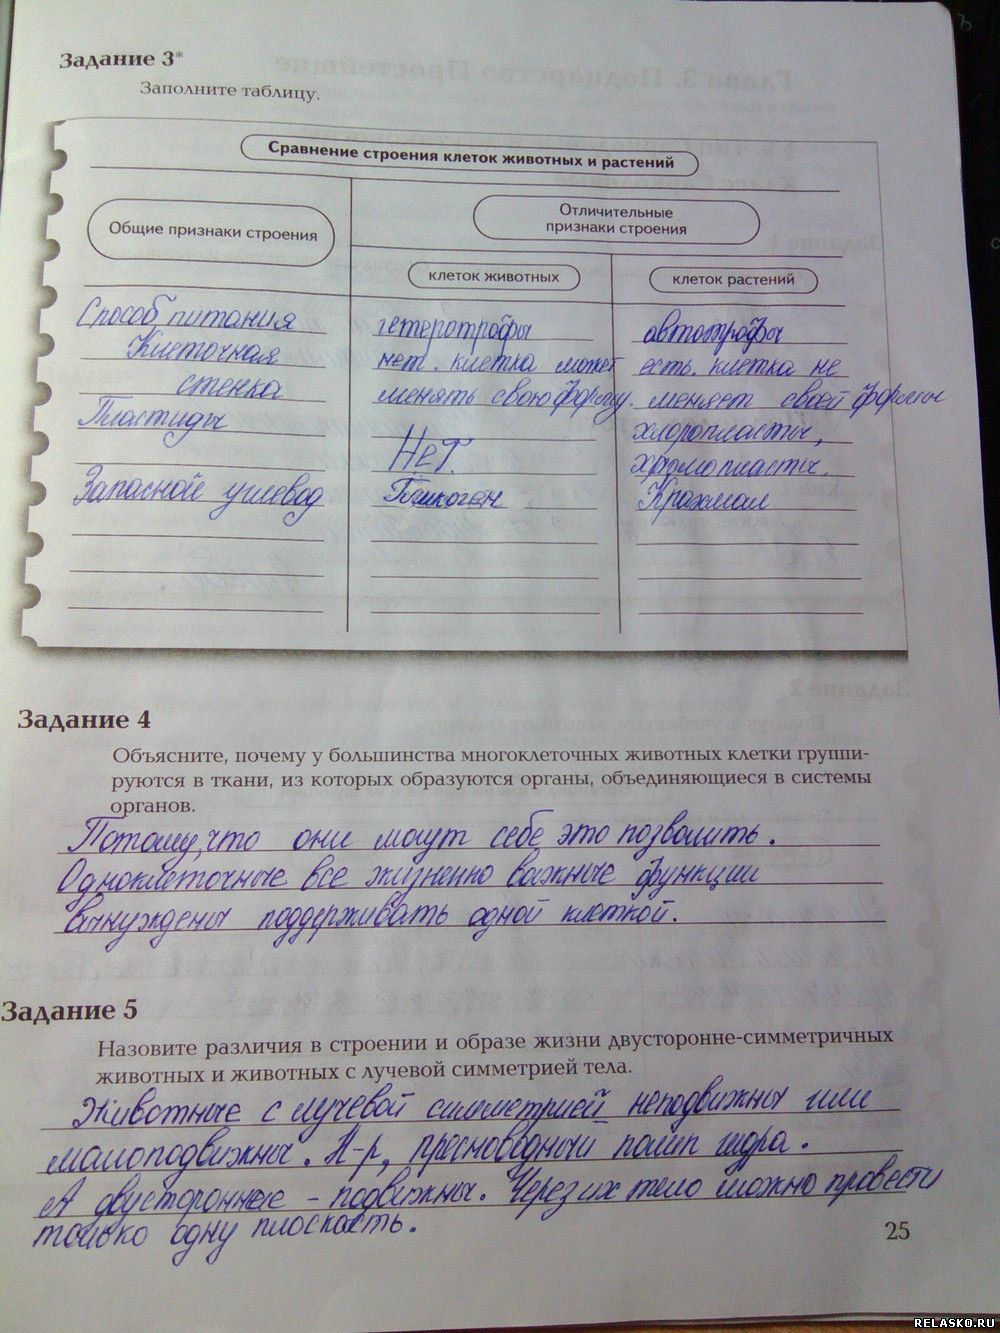 Задание 3*
Заполните таблицу.
Сравнение строения клеток животных и растений
Общие признаки строения
Отличительные
признаки строения
клеток животных
клеток растений
Способ питания гетеротрофы автотрофы
Клеточная нет. клетка может есть. клетка не
стенка менять свою форму. меняет своей формы
Пластиды хлоропласты,
Нет. хромопласты.
Запасной углевод Гликоген Крахмал
Задание 4
Объясните, почему у большинства многоклеточных животных клетки группи-
руются в ткани, из которых образуются органы, объединяющиеся в системы
органов.
Потому, что они могут себе это позволить.
Одноклеточные все жизненно важные функции
вынуждены поддерживать одной клеткой.
Задание 5
Назовите различия в строении и образе жизни двусторонне-симметричных
животных и животных с лучевой симметрией тела.
Животные с лучевой симметрией неподвижны или
малоподвижны. Н-р, пресноводный полип гидра.
А двусторонние - подвижны. Через их тело можно провести
только одну плоскасть.
25
RELASKO.RU